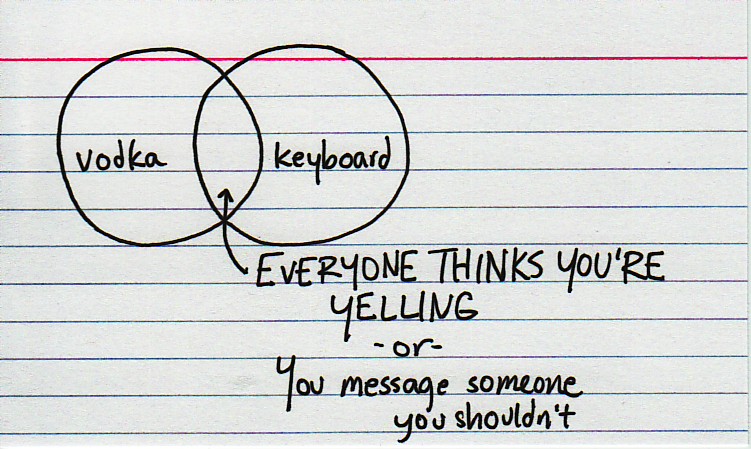 vodka
keyboard
EVERYONE THINKS YOU'RE
YELLING
-or-
You message someone
you shouldn't